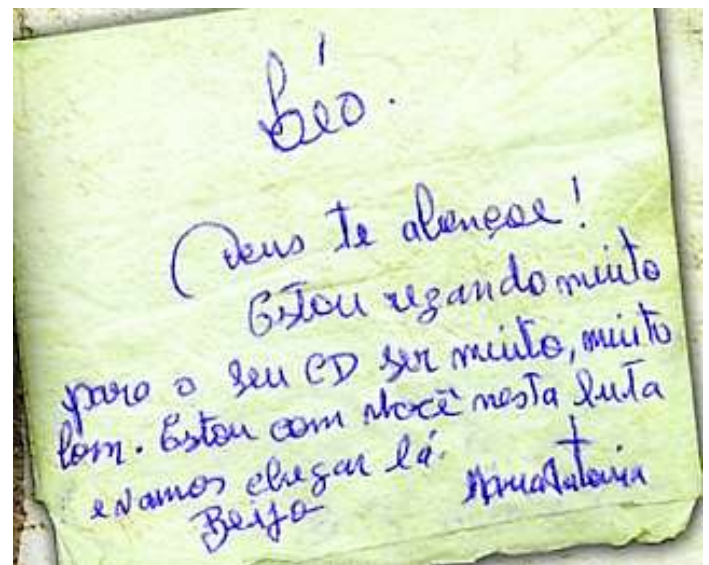 Léo.
Deus te abençoe!
Estou rezando muito
para o seu CD ser muito, muito
bom. Estou com você nesta luta
e vamos chegar lá.
Beijo